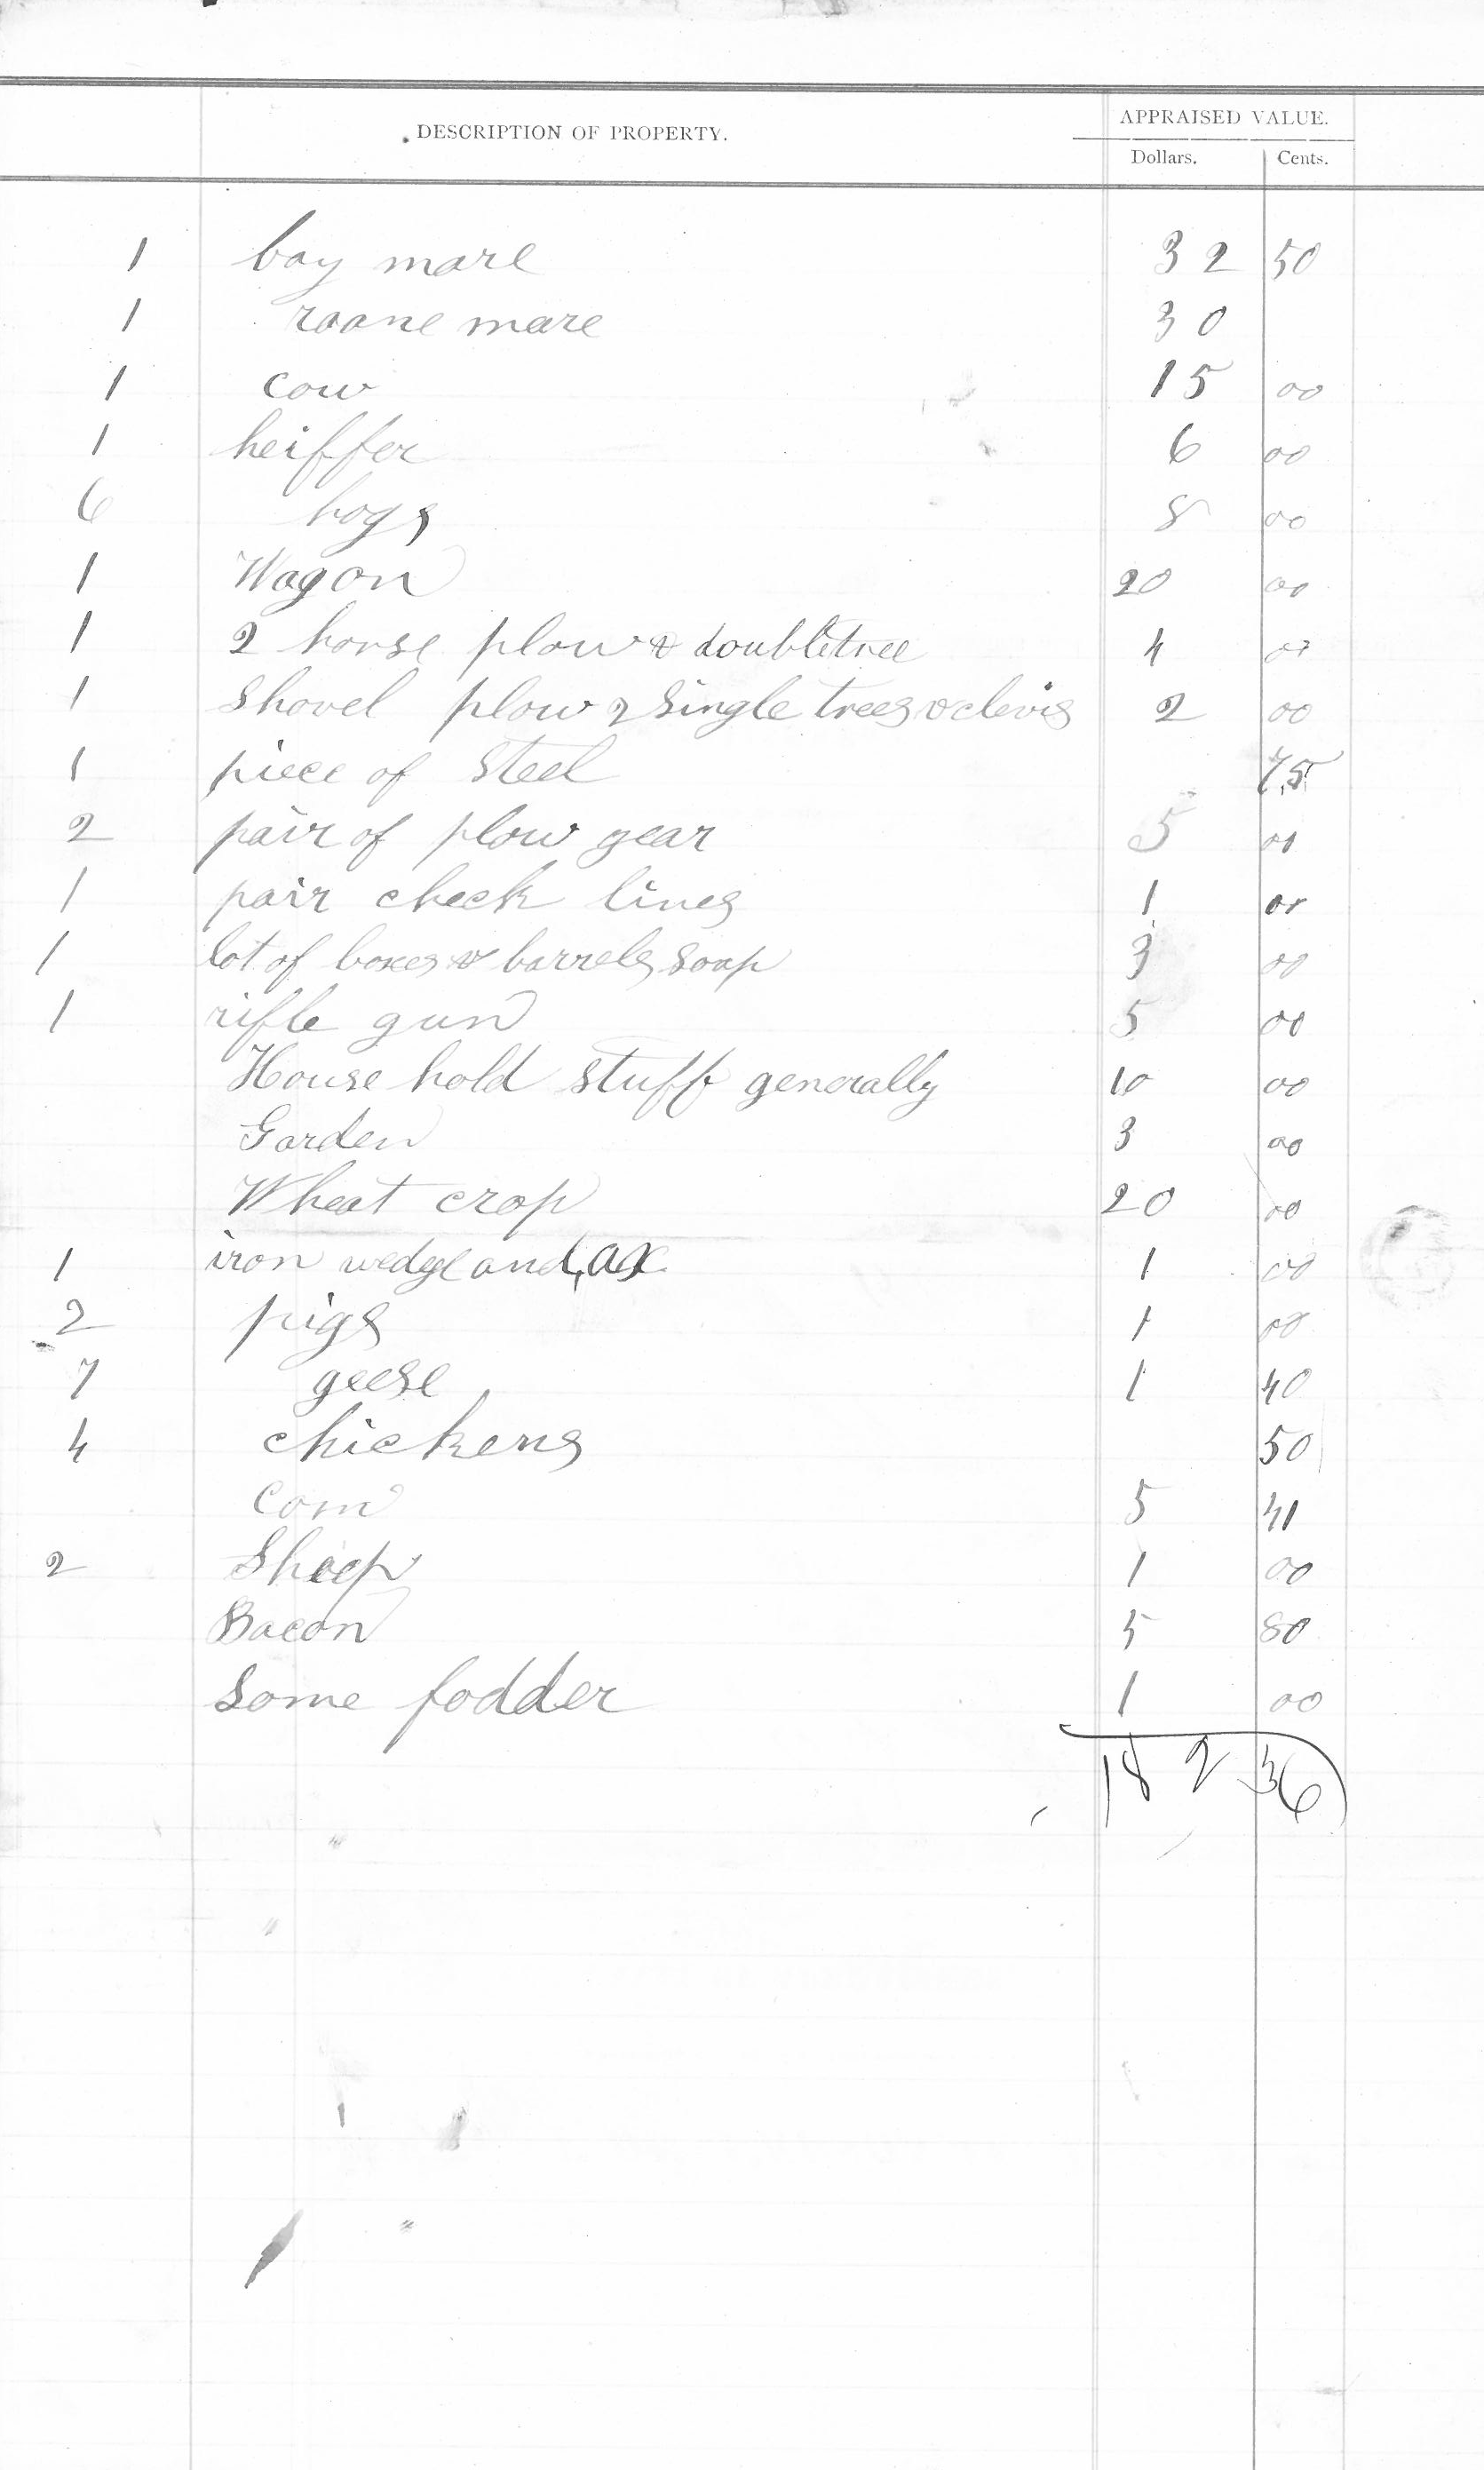 DESCRIPTION OF PROPERTY. APPRAISED VALUE.
Dollars. Cents.
1 bay mare 32 50
1 roane mare 30
1 cow 15 00
1 heiffer 6 00
6 hogs 8 00
1 Wagon 20 00
1 2 horse plow & doubletree 4 00
1 Shovel plow 2 Single trees & clevis 2 00
1 piece of Steel 75
2 pair of plow gear 5 00
1 pair check lines 1 00
1 lot of boxes & barrels, Soap 3 00
1 rifle gun 5 00
House hold stuff generally 10 00
Garden 3 00
Wheat crop 20 00
1 iron wedge and, ax 1 00
2 pigs 1 00
7 geese 1 40
4 chickens 50
Corn 5 41
2 Sheep 1 00
Bacon 5 80
Some fodder 1 00
182 36